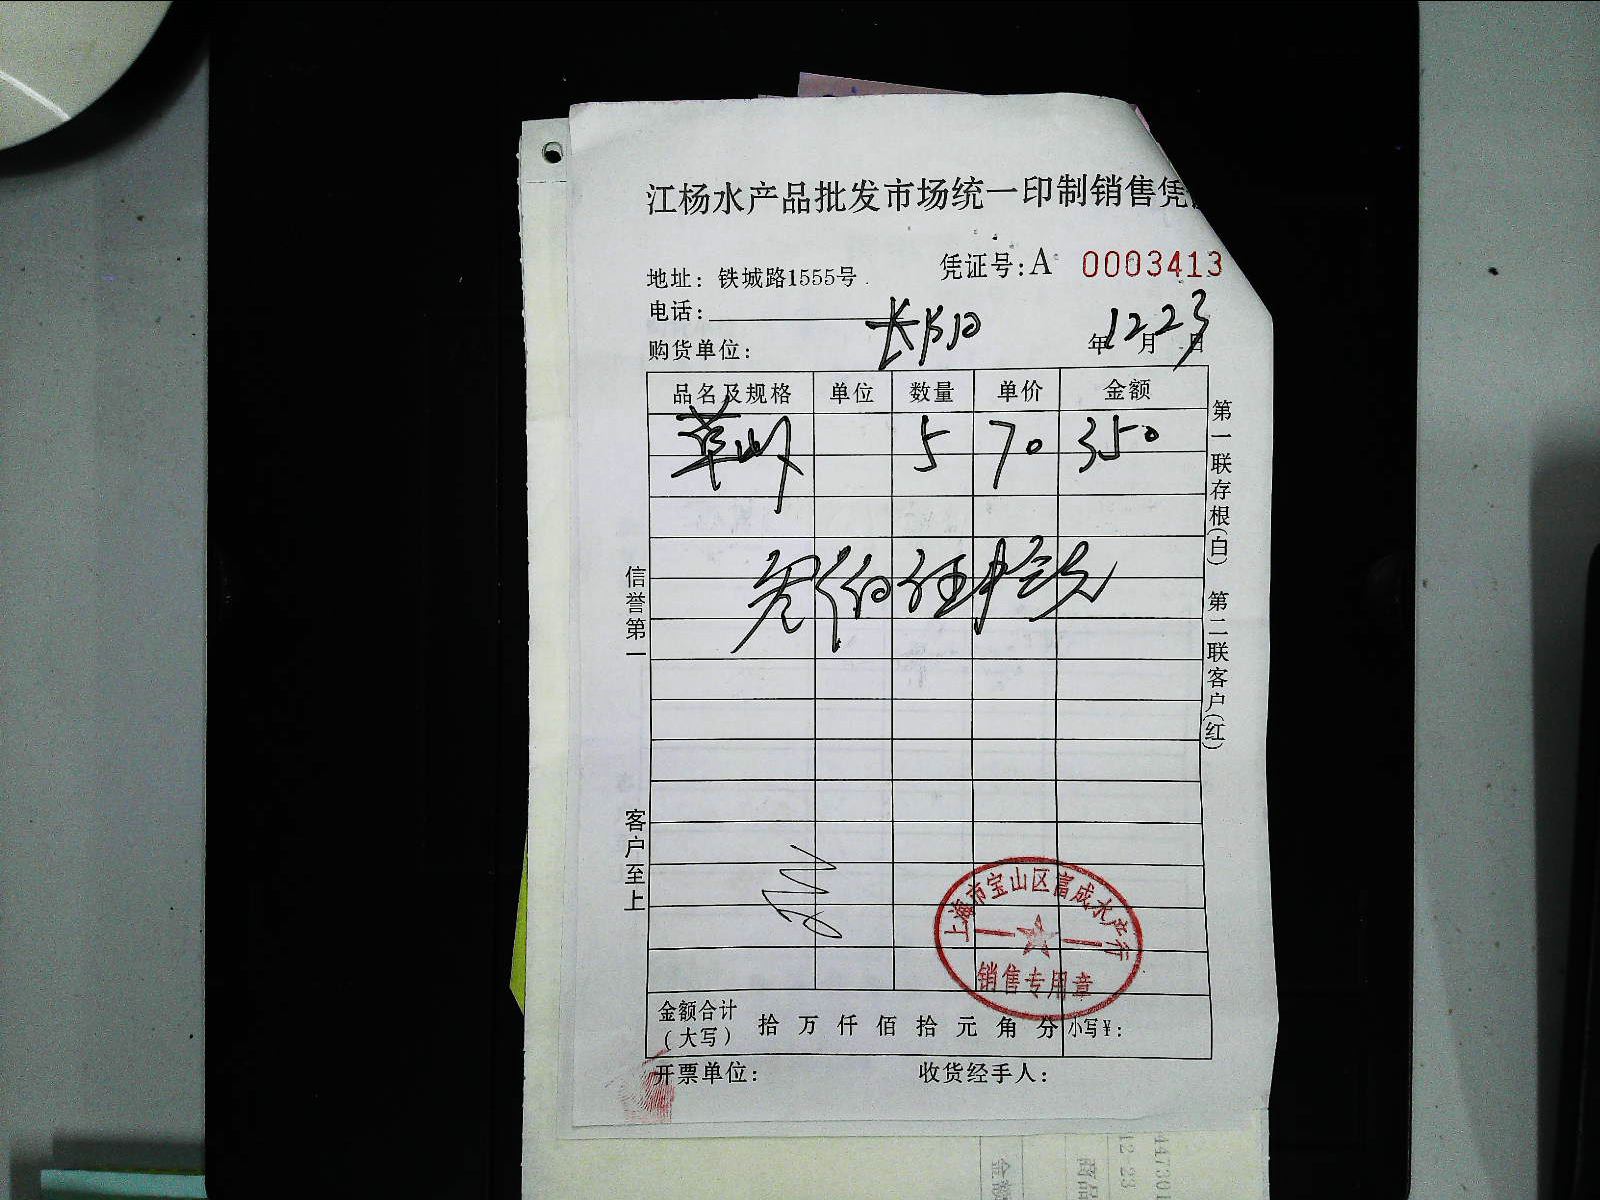 江杨水产品批发市场统一印制销售凭
凭证号:A 0003413
地址: 铁城路1555号
电话:
购货单位:
年12月23日
品名及规格 单位 数量 单价 金额
草 5 70 350
叁佰伍拾元
信誉第一
客户至上
第一联存根(白) 第二联客户(红)
上海市宝山区富成水产行
销售专用章
金额合计(大写) 拾 万 仟 佰 拾 元 角 分 小写¥:
开票单位: 收货经手人:
447301
12 23